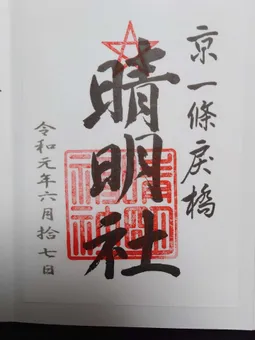 京一條戻橋
晴明社
令和元年六月拾七日